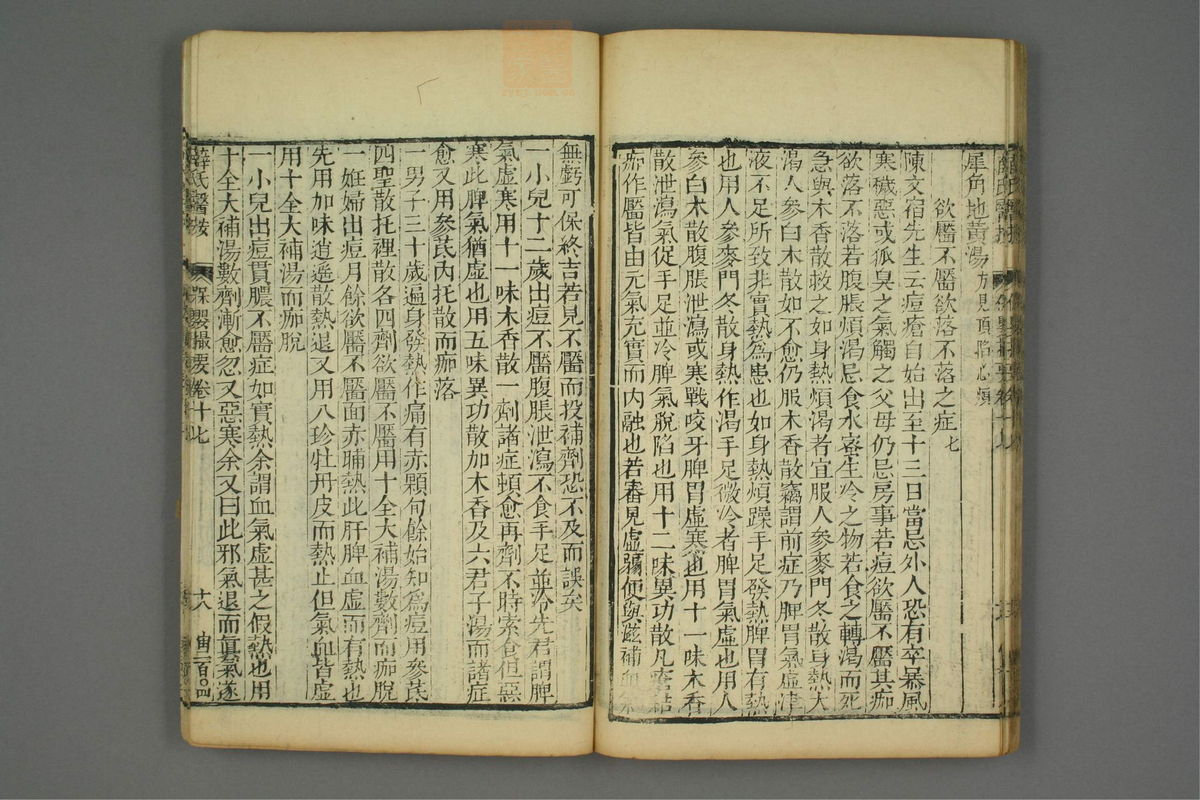 犀角地黃湯方見頂陷心煩
欲靨不靨欲落不落之症七
陳文宿先生云痘瘡自始出至十三日當忌外人恐有卒暴風
寒穢惡或狐臭之氣觸之父母仍忌房事若痘欲靨不靨其痂
欲落不落若腹脹煩渴忌食水蜜生冷之物若食之轉渴而死
急與木香散救之如身熱煩渴者宜服人參麥門冬散身熱大
渴人參白朮散如不愈仍服木香散竊謂前症乃脾胃氣虛津
液不足所致非實熱為患也如身熱煩躁手足發熱脾胃有熱
也用人參麥門冬散身熱作渴手足微冷者脾胃氣虛也用人
參白朮散腹脹泄瀉或寒戰咬牙脾胃虛寒也用十一味木香
散泄瀉氣促手足並冷脾氣脫陷也用十二味異功散凡瘡結
痂作靨皆由元氣充實而內融也若審見虛弱便與滋補血氣
無虧可保終吉若見不靨而投補劑恐不及而誤矣
一小兒十二歲出痘不靨腹脹泄瀉不食手足並冷先君謂脾
氣虛寒用十一味木香散一劑諸症頓愈再劑不時索食但惡
寒此脾氣猶虛也用五味異功散加木香及六君子湯而諸症
愈又用參芪內托散而痂落
一男子三十歲遍身發熱作痛有赤顆旬餘始知為痘用參芪
四聖散托裡散各四劑欲靨不靨用十全大補湯數劑而痂脫
一姙婦出痘月餘欲靨不靨面赤晡熱此肝脾血虛而有熱也
先用加味逍遙散熱退又用八珍牡丹皮而熱止但氣血皆虛
用十全大補湯而痂脫
一小兒出痘貫膿不靨症如實熱余謂血氣虛甚之假熱也用
十全大補湯數劑漸愈忽又惡寒余又曰此邪氣退而眞氣遂
薛氏醫按 保嬰撮要卷十七 十八 宙二百〇四